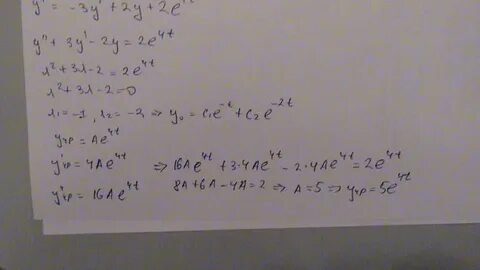 y' = -3y' + 2y + 2e
y'' + 3y' - 2y = 2e^{4t}
λ² + 3λ - 2 = 2e^{4t}
λ² + 3λ - 2 = 0
λ₁ = -1, λ₂ = -2 ⇒ y₀ = c₁e^{-t} + c₂e^{-2t}
yчр = Ae^{4t}
y'чр = 4Ae^{4t} ⇒ 16Ae^{4t} + 3·4Ae^{4t} - 2·4Ae^{4t} = 2e^{4t}
y''чр = 16Ae^{4t} 8A + 6A - 4A = 2 ⇒ A = 5 ⇒ yчр = 5e^{4t}